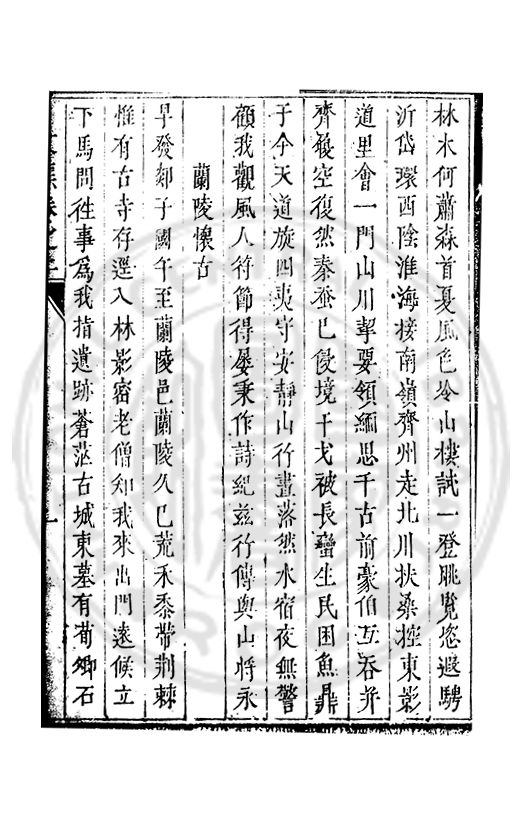 林木何蕭森首夏風色冷山樓試一登眺覽恣遐騁
沂岱環西陰淮海接南嶺齊州走北川扶桑控東影
道里會一門山川挈要領緬思千古前豪伯互吞并
齊後空復然秦蚕已侵境干戈被長蠻生民困魚鼎
于今天道旋四夷守安靜山行晝落然水宿夜無警
顧我觀風人符節得屢秉作詩紀茲行傳與山將永
蘭陵懷古
早發郯子國午至蘭陵邑蘭陵久已荒禾黍帶荆棘
惟有古寺存逕入林影密老僧知我來出門遠候立
下馬問徃事為我指遺跡蒼茫古城東墓有荀卿石